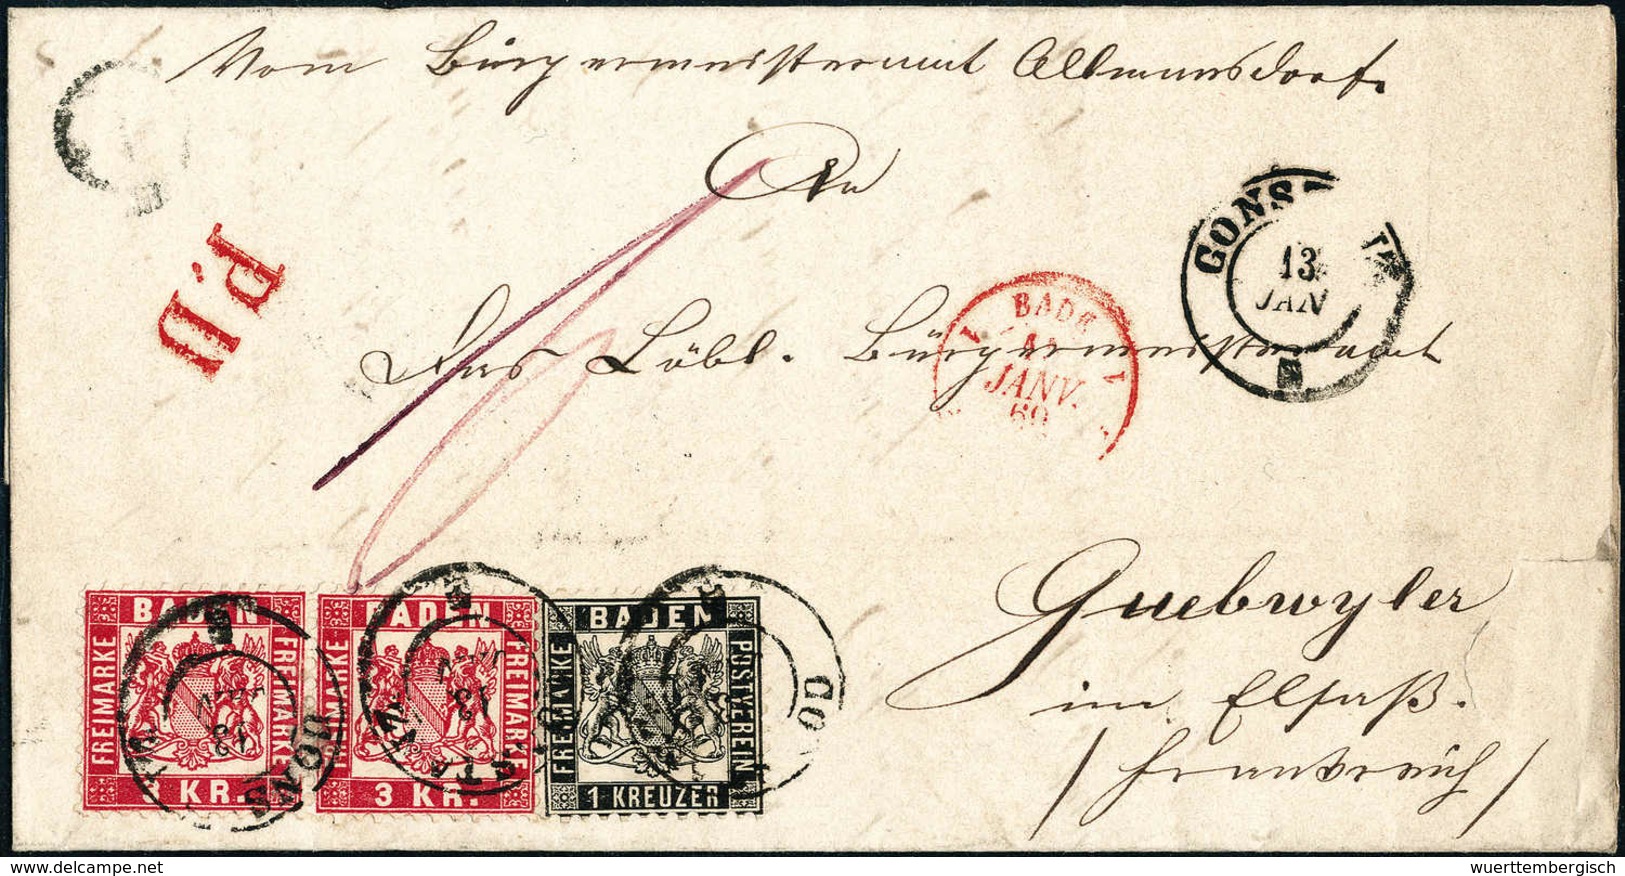 Vom Bürgermeisteramt Allmansdorf.
An
P.D
CONSTANZ
13
JAN
BADE
JANV.
69
Das Löbl. Bürgermeisteramt
Guebwyler
im Elsaß.
/Frankreich/
BADEN
FREIMARKE
FREIMARKE
3 KR.
BADEN
FREIMARKE
FREIMARKE
3 KR.
BADEN
FREIMARKE
POSTVEREIN
1 KREUZER
CONSTANZ
13
CONSTANZ
13
delcampe.net
wuerttembergisch